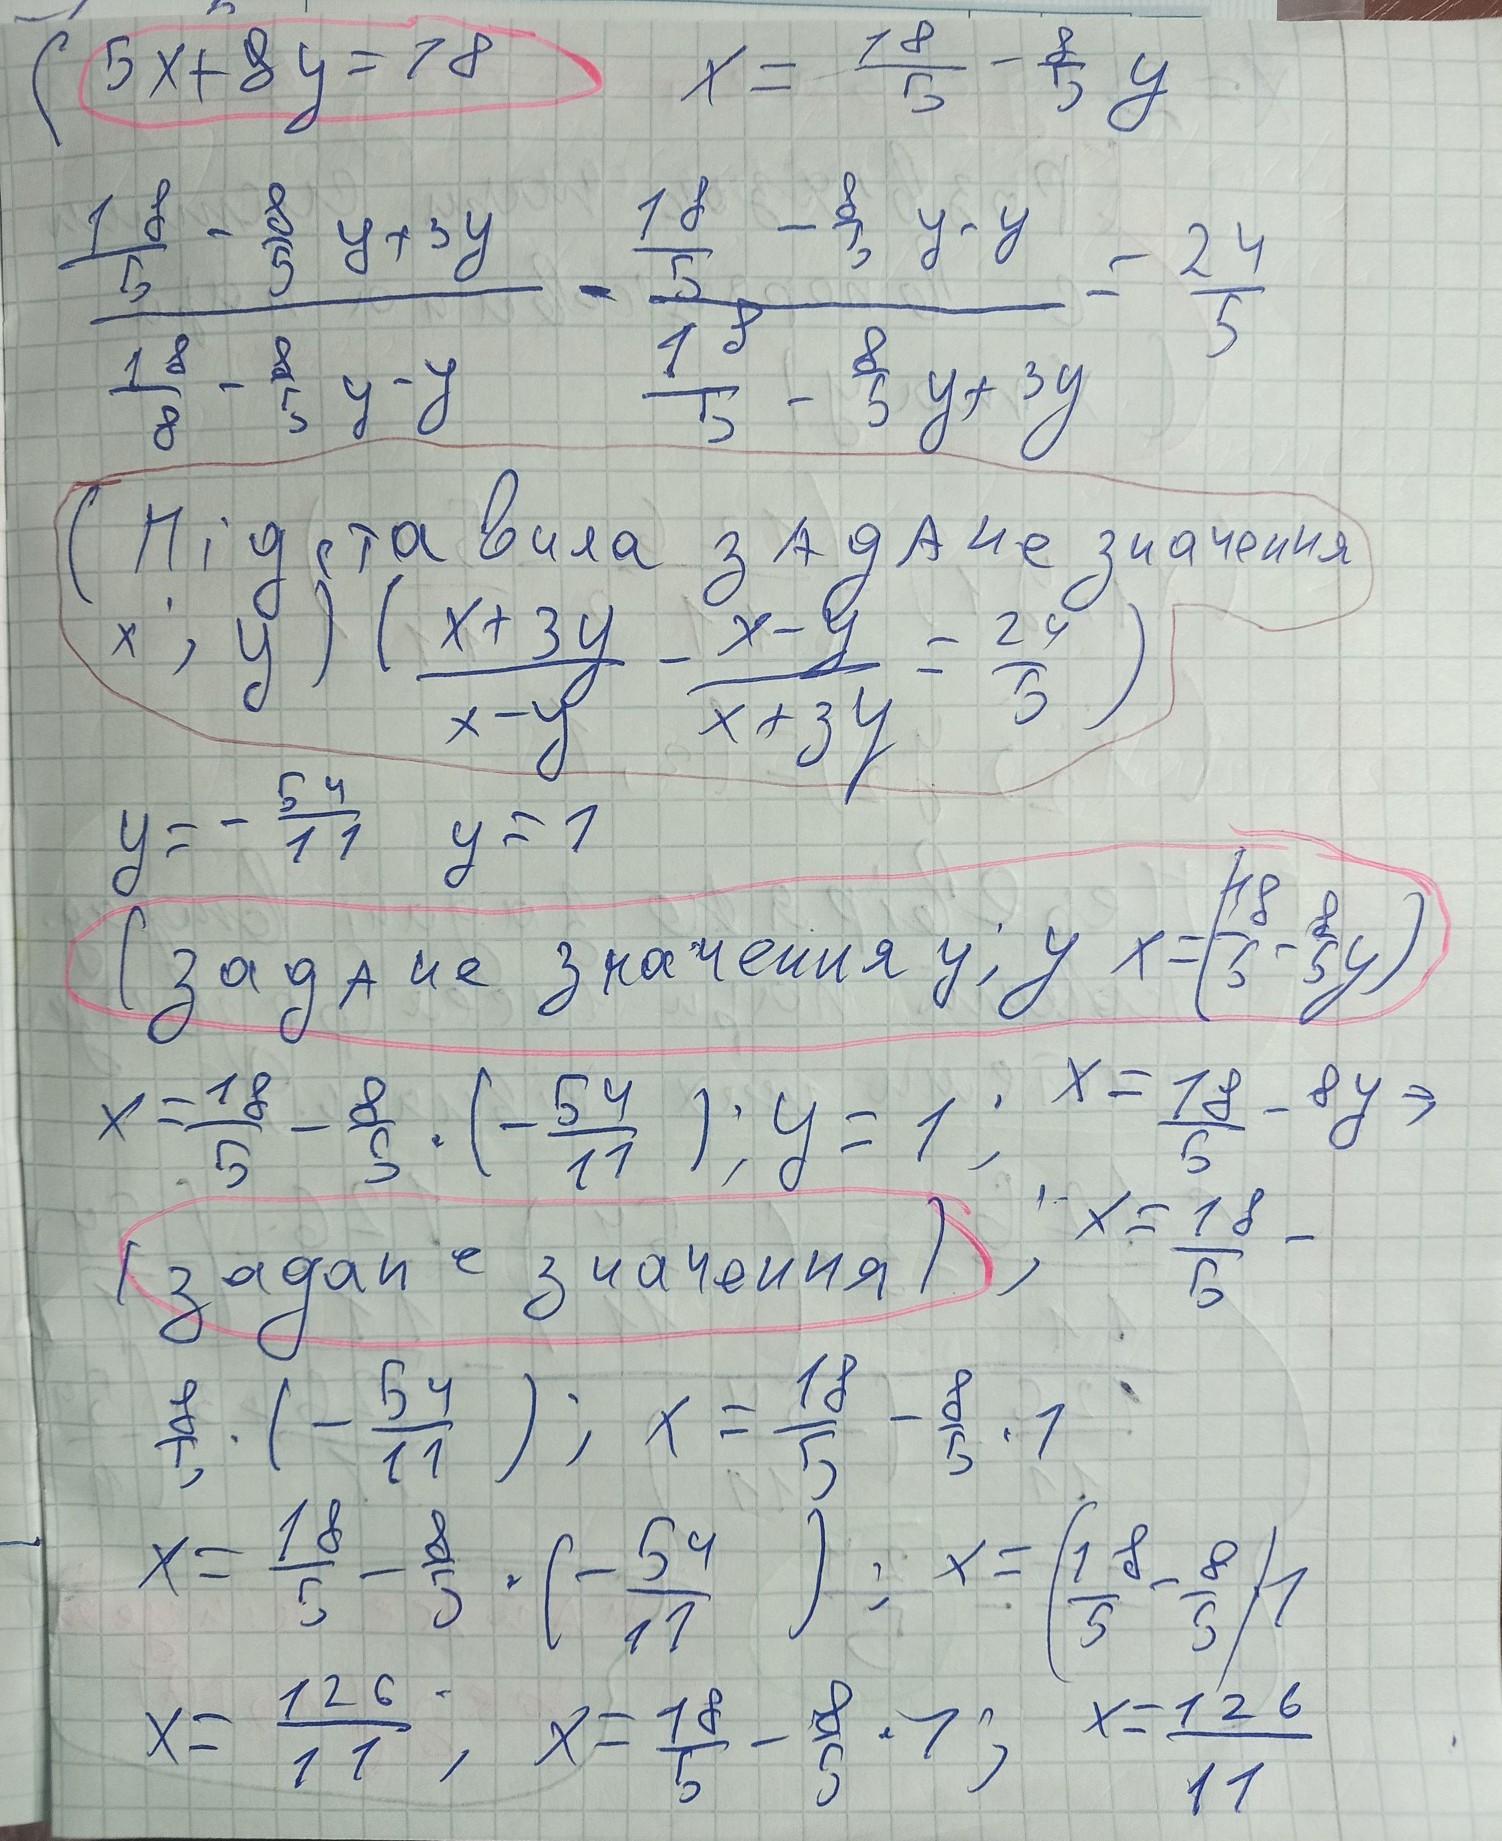 ( 5x+8y=18 x = 18/5 - 8/5 y
(18/5 - 8/5 y+3y)/(18/8 - 8/5 y-y) - (18/5 - 8/5 y-y)/(18/5 - 8/5 y+3y) = 24/5
( Підставила задане значення
x; y) ( (x+3y)/(x-y) - (x-y)/(x+3y) = 24/5 )
y= - 54/11 y=1
( задане значення y; y x=(18/5 - 8/5 y)
x=18/5 - 8/5 · (- 54/11 ); y=1; x=18/5 - 8y →
(задане значення) ; x=18/5 -
8/5 · (- 54/11 ); x = 18/5 - 8/5 · 1
x= 18/5 - 8/5 · (- 54/11 ) ; x=(18/5 - 8/5)1
x= 126/11 , x=18/5 - 8/5 · 1; x=126/11